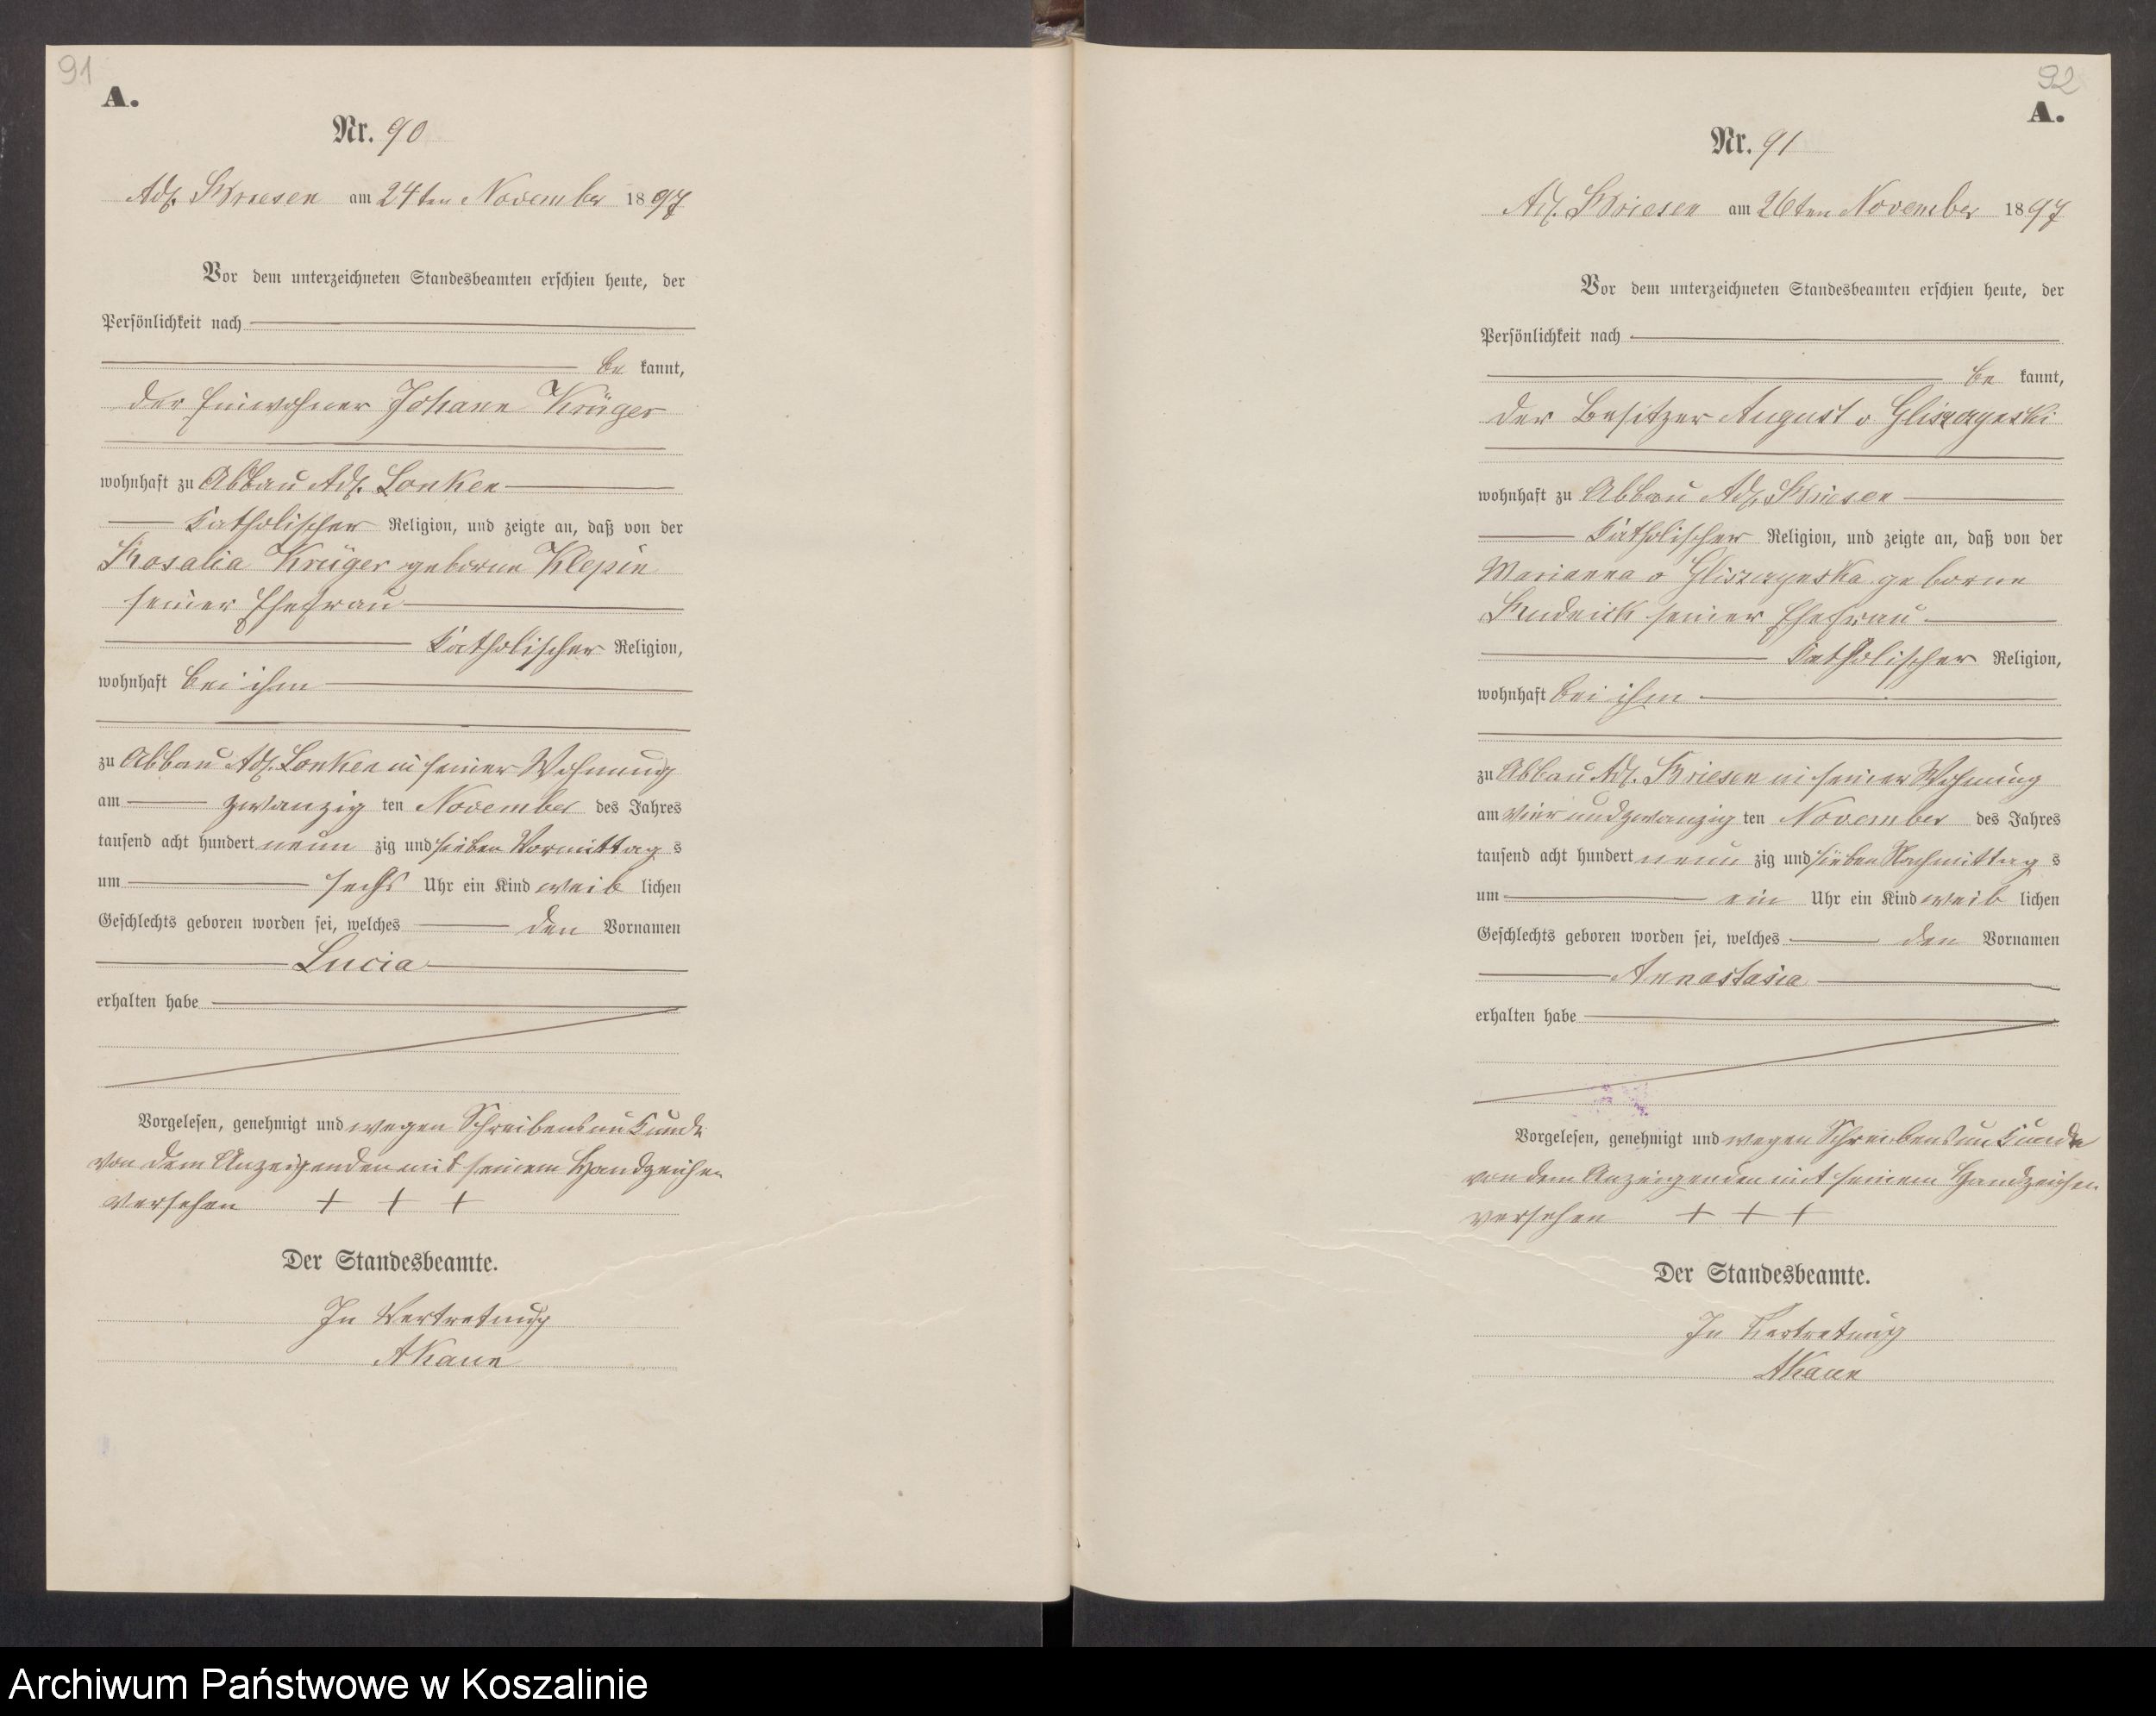 91
A.
Nr. 90
Adl. Briesen am 24ten November 1897
Vor dem unterzeichneten Standesbeamten erschien heute, der
Persönlichkeit nach
be kannt,
der Einwohner Johann Krüger
wohnhaft zu Abbau Adl. Lonken
katholischer Religion, und zeigte an, daß von der
Rosalia Krüger geborne Klepin
seiner Ehefrau
katholischer Religion,
wohnhaft bei ihm
zu Abbau Adl. Lonken in seiner Wohnung
am zwanzig ten November des Jahres
tausend acht hundert neun zig und sieben Vormittag s
um sechs Uhr ein Kind weib lichen
Geschlechts geboren worden sei, welches den Vornamen
Lucia
erhalten habe
Vorgelesen, genehmigt und wegen Schreibensunkunde
von dem Anzeigenden mit seinem Handzeichen
versehen + + +
Der Standesbeamte.
In Vertretung
92
A.
Nr. 91
Adl. Briesen am 26ten November 1897
Vor dem unterzeichneten Standesbeamten erschien heute, der
Persönlichkeit nach
be kannt,
der Besitzer August v
wohnhaft zu Abbau Adl. Briesen
katholischer Religion, und zeigte an, daß von der
Marianna v geborne
seiner Ehefrau
katholischer Religion,
wohnhaft bei ihm
zu Abbau Adl. Briesen in seiner Wohnung
am vier und zwanzig ten November des Jahres
tausend acht hundert neun zig und sieben Nachmittag s
um ein Uhr ein Kind weib lichen
Geschlechts geboren worden sei, welches den Vornamen
Annastasia
erhalten habe
Vorgelesen, genehmigt und wegen Schreibensunkunde
von dem Anzeigenden mit seinem Handzeichen
versehen + + +
Der Standesbeamte.
In Vertretung
Archiwum Państwowe w Koszalinie